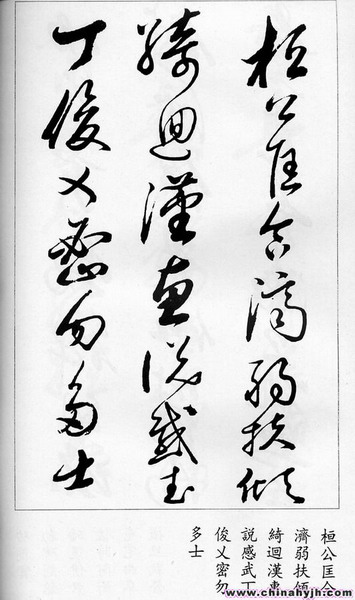 桓公匡合濟弱扶傾
綺迴漢惠説感武
丁俊乂密勿多士
桓公匡合
濟弱扶傾
綺迴漢惠
説感武丁
俊乂密勿
多士
www.chinahyjh.com